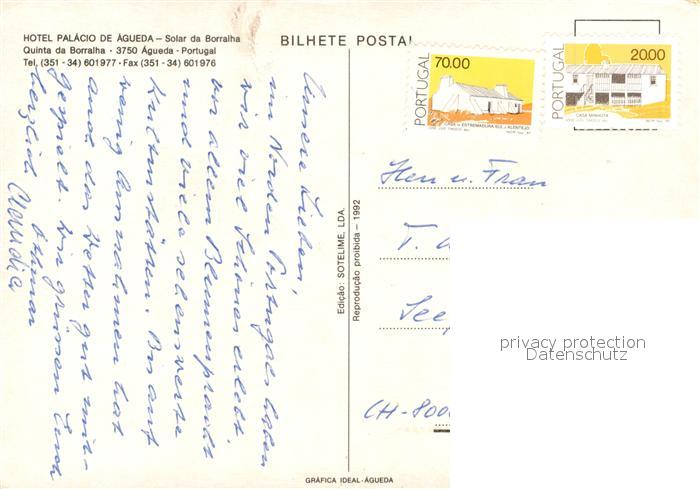 HOTEL PALÁCIO DE ÁGUEDA — Solar da Borralha
Quinta da Borralha · 3750 Águeda - Portugal
Tel. (351 - 34) 601977 · Fax (351 - 34) 601976
BILHETE POSTAL
PORTUGAL
70.00
CASA DE ESTREMADURA SUL E ALENTEJO
PORTUGAL
20.00
CASA MINHOTA
Unsere Lieben,
im Norden Portugals haben
wir viel Schönes erlebt,
vor allem Blumenpracht
und viele sehenswerte
Kulturstätten. Bis auf
wenig Ausnahmen hat
auch das Wetter gut mit-
gespielt. Wir grüssen Euch
herzlich Othmar
Claudia
Edição: SOTELIME, LDA.
Reprodução proibida — 1992
Herr u. Frau
T.
See
CH-800
privacy protection
Datenschutz
GRÁFICA IDEAL - ÁGUEDA